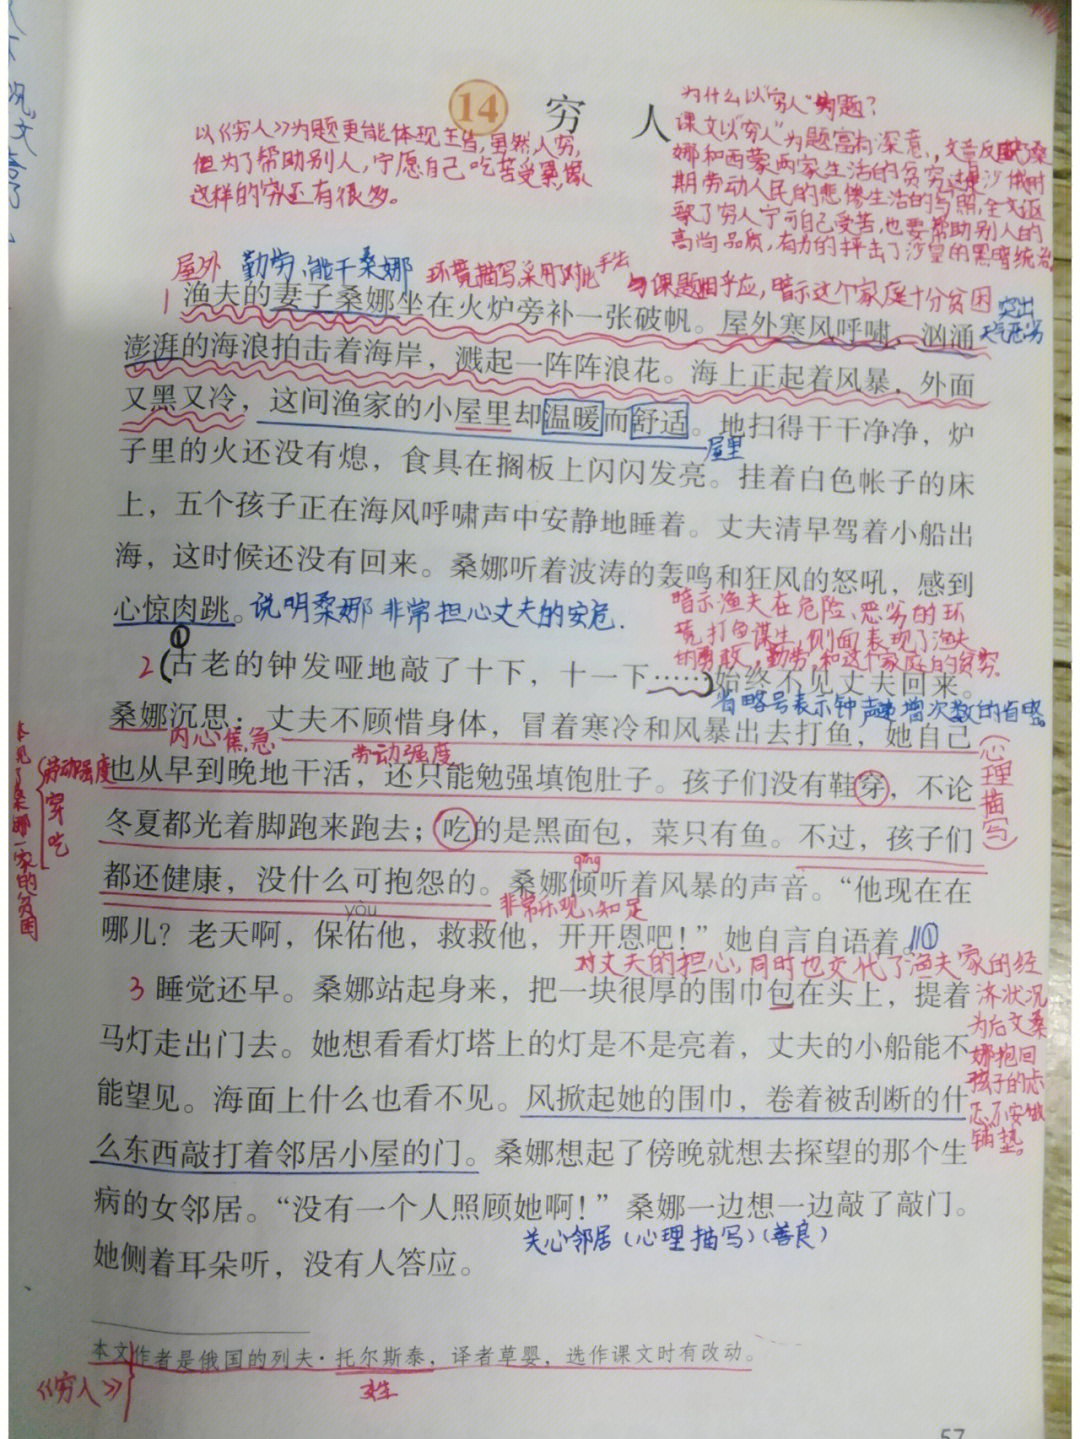 14 穷人
为什么以"穷人"为题?
课文以"穷人"为题富有深意,文章反映了桑
娜和西蒙两家生活的贫穷,过是沙俄时
期劳动人民的悲惨生活的写照,全文讴
歌了穷人宁可自己受苦,也要帮助别人的
高尚品质,有力的抨击了沙皇的黑暗统治
以《穷人》为题更能体现主旨,虽然人穷,
但为了帮助别人,宁愿自己吃苦受累,像
这样的穷还有很多。
屋外 勤劳、能干桑娜 环境描写采用对比手法
与课题相乎应,暗示这个家庭十分贫困 突出
天气恶劣
1 渔夫的妻子桑娜坐在火炉旁补一张破帆。屋外寒风呼啸,汹涌
澎湃的海浪拍击着海岸,溅起一阵阵浪花。海上正起着风暴,外面
又黑又冷,这间渔家的小屋里却温暖而舒适。地扫得干干净净,炉
屋里
子里的火还没有熄,食具在搁板上闪闪发亮。挂着白色帐子的床
上,五个孩子正在海风呼啸声中安静地睡着。丈夫清早驾着小船出
海,这时候还没有回来。桑娜听着波涛的轰鸣和狂风的怒吼,感到
心惊肉跳。说明桑娜非常担心丈夫的安危.
暗示渔夫在危险、恶劣的环
境打鱼谋生,侧面表现了渔夫
的勇敢,勤劳,和这个家庭的贫穷.
①
2(古老的钟发哑地敲了十下,十一下……)始终不见丈夫回来。
省略号表示钟声递增次数的省略。
桑娜沉思:丈夫不顾惜身体,冒着寒冷和风暴出去打鱼,她自己
内心焦急 劳动强度
(心理描写)
也从早到晚地干活,还只能勉强填饱肚子。孩子们没有鞋穿,不论
劳动强度
穿
吃
冬夏都光着脚跑来跑去;吃的是黑面包,菜只有鱼。不过,孩子们
都还健康,没什么可抱怨的。桑娜倾听着风暴的声音。“他现在在
qīng
yòu
非常乐观、知足
哪儿?老天啊,保佑他,救救他,开开恩吧!”她自言自语着。
对丈夫的担心,同时也交代了渔夫家的经
济状况
为后文桑
娜抱回
孩子的忐
忑不安做
铺垫。
3 睡觉还早。桑娜站起身来,把一块很厚的围巾包在头上,提着
马灯走出门去。她想看看灯塔上的灯是不是亮着,丈夫的小船能不
能望见。海面上什么也看不见。风掀起她的围巾,卷着被刮断的什
么东西敲打着邻居小屋的门。桑娜想起了傍晚就想去探望的那个生
病的女邻居。“没有一个人照顾她啊!”桑娜一边想一边敲了敲门。
关心邻居(心理描写)(善良)
她侧着耳朵听,没有人答应。
本文作者是俄国的列夫·托尔斯泰,译者草婴,选作课文时有改动。
《穷人》
57